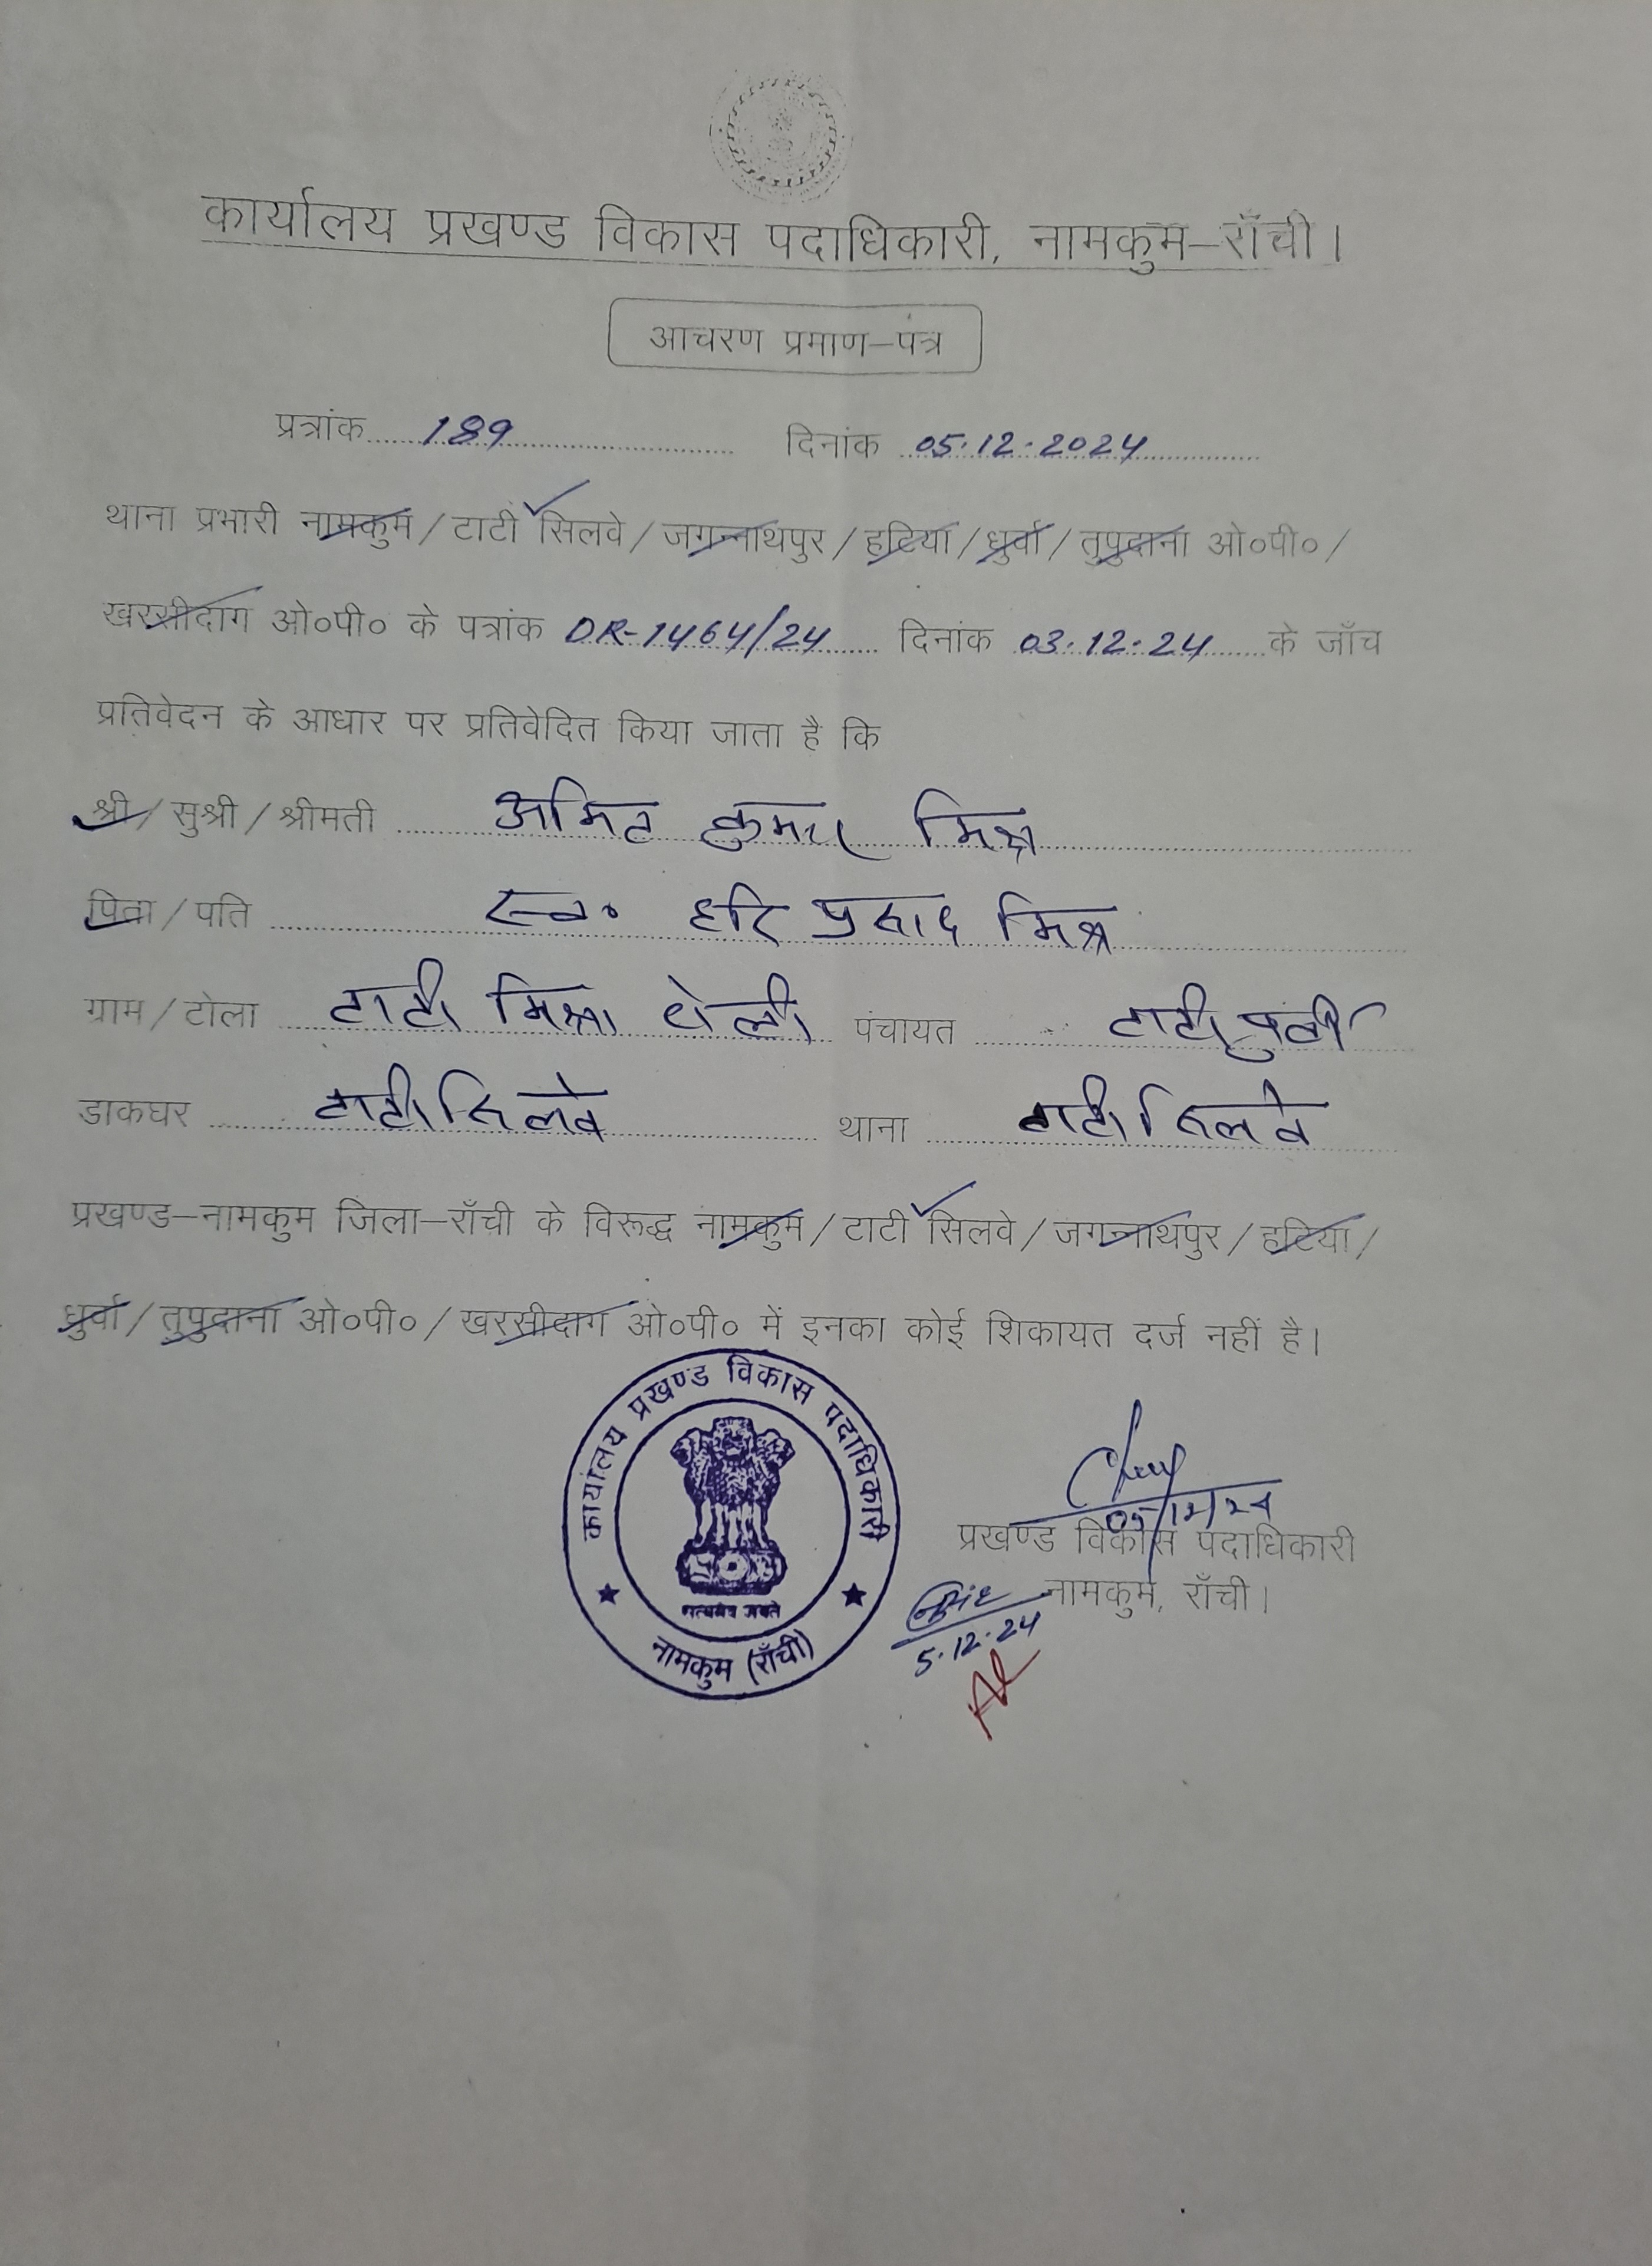 कार्यालय प्रखण्ड विकास पदाधिकारी, नामकुम–राँची।
आचरण प्रमाण–पत्र
प्रत्रांक 189 दिनांक 05.12.2024
थाना प्रभारी नामकुम/टाटी सिलवे/जगन्नाथपुर/हटिया/धुर्वा/तुपुदाना ओ०पी०/
खरसीदाग ओ०पी० के पत्रांक DR-1464/24 दिनांक 03.12.24 के जाँच
प्रतिवेदन के आधार पर प्रतिवेदित किया जाता है कि
श्री/सुश्री/श्रीमती अमित कुमार मिश्र
पिता/पति स्व० हरि प्रसाद मिश्र
ग्राम/टोला टाटी मिश्रा टोली पंचायत टाटी पूर्वी
डाकघर टाटीसिलवे थाना टाटीसिलवे
प्रखण्ड–नामकुम जिला–राँची के विरूद्ध नामकुम/टाटी सिलवे/जगन्नाथपुर/हटिया/
धुर्वा/तुपुदाना ओ०पी०/खरसीदाग ओ०पी० में इनका कोई शिकायत दर्ज नहीं है।
कार्यालय प्रखण्ड विकास पदाधिकारी
सत्यमेव जयते
नामकुम (राँची)
05/12/24
प्रखण्ड विकास पदाधिकारी
नामकुम, राँची।
5.12.24